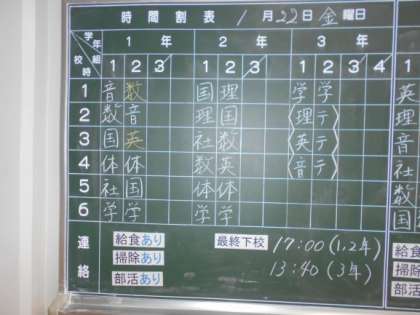 時間割表 1月22日金曜日
学年 組 校時 1年 2年 3年
1 2 3 1 2 3 1 2 3 4
1 音 数 国 理 学 学 英
2 数 音 理 国 〈理テ〉 理
3 国 英 社 数 〈英テ〉 音
4 体 体 数 英 〈音テ〉 社
5 社 国 体 体 数
6 学 学 学 学 国
連絡
給食あり 最終下校 17:00(1,2年) 給食
掃除あり 13:40(3年) 掃除
部活あり 部活